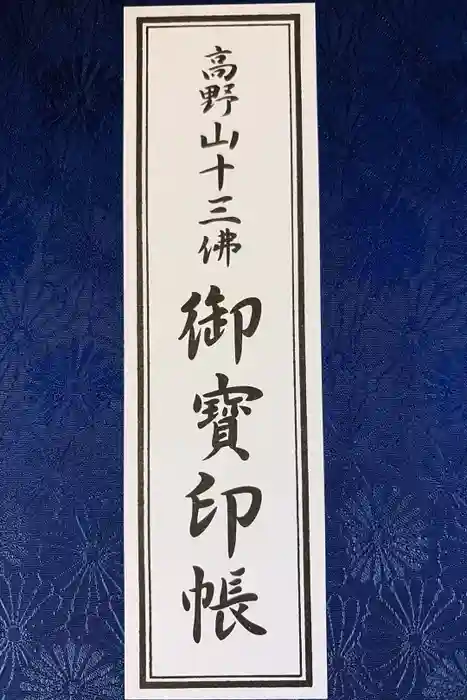 高野山十三佛
御寶印帳